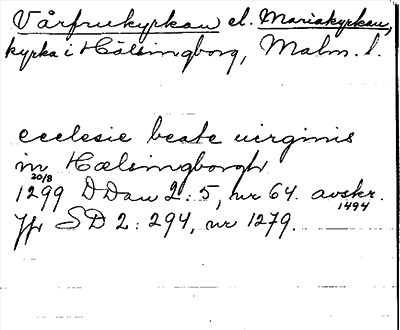 Vårfrukyrkan el. Mariakyrkan,
kyrka i Hälsingborg, Malm. l.
ecclesie beate uirginis
in Hælsingborgh
20/8
1299 DDan 2:5, nr 64. avskr.
1494
Jfr SD 2:294, nr 1279.